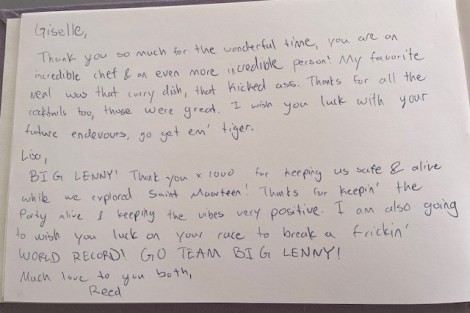 Giselle,
Thank you so much for the wonderful time, you are an
incredible chef & an even more incredible person! My favorite
meal was that curry dish, that kicked ass. Thanks for all the
cocktails too, those were great. I wish you luck with your
future endevours, go get em' tiger.
BIG LENNY! Thank you x 1000 for keeping us safe & alive
while we explored Saint Maarteen! Thanks for keepin' the
Party alive & keeping the vibes very positive. I am also going
to wish you luck on your race to break a frickin'
WORLD RECORD! GO TEAM BIG LENNY!
Much love to you both,
Reed